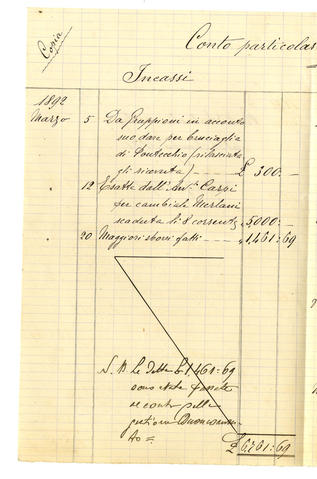 Copia
Conto particolar
Incassi
1892
Marzo 5 Da Gruppioni in acconto
suo dare per bruciaglia
di Pontecchio (rilasciata
gli ricevuta) £ 300: —
12 Esatte dall' Avv. Carpi
per cambiale Merlani
scaduta li 8 corrente „ 5,000: —
20 Maggiori sborsi fatti „ 1,461:69
N. B. Le dette £ 1,461:69
sono state
re conto della
gestione
to =
£ 6,761:69